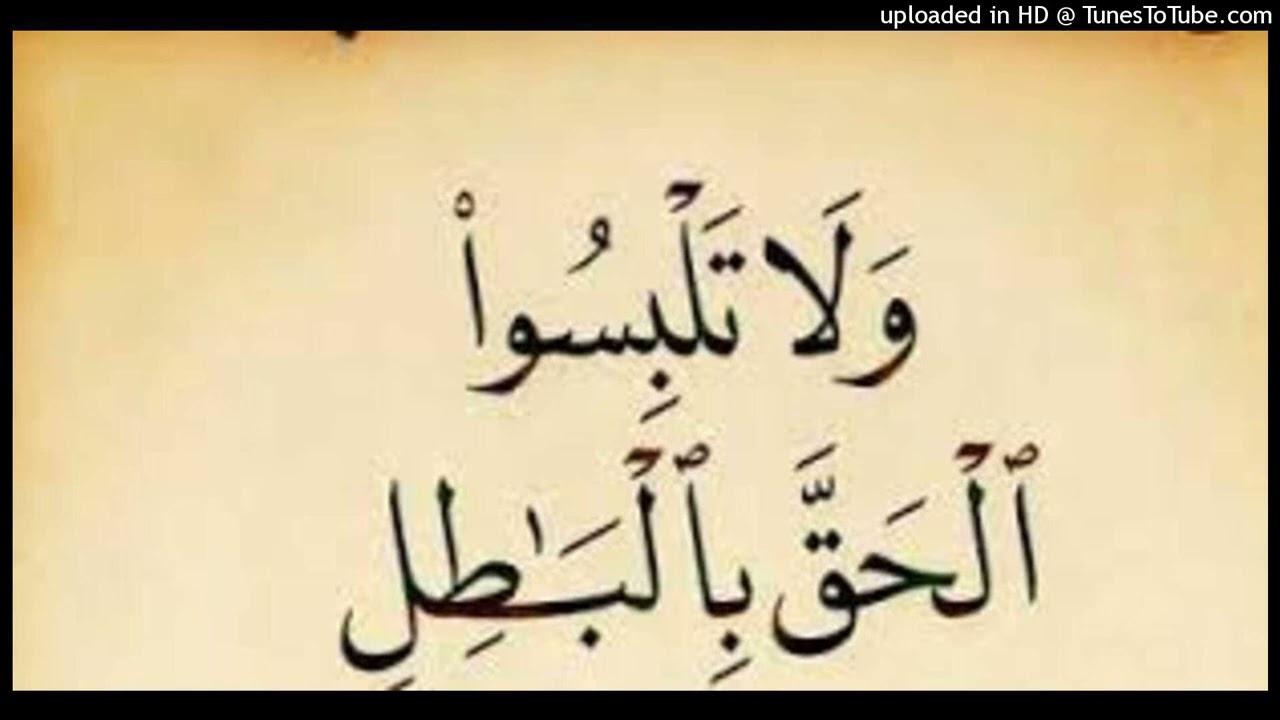 uploaded in HD @ TunesToTube.com
وَلَا تَلۡبِسُواْ
ٱلۡحَقَّ بِٱلۡبَٰطِلِ